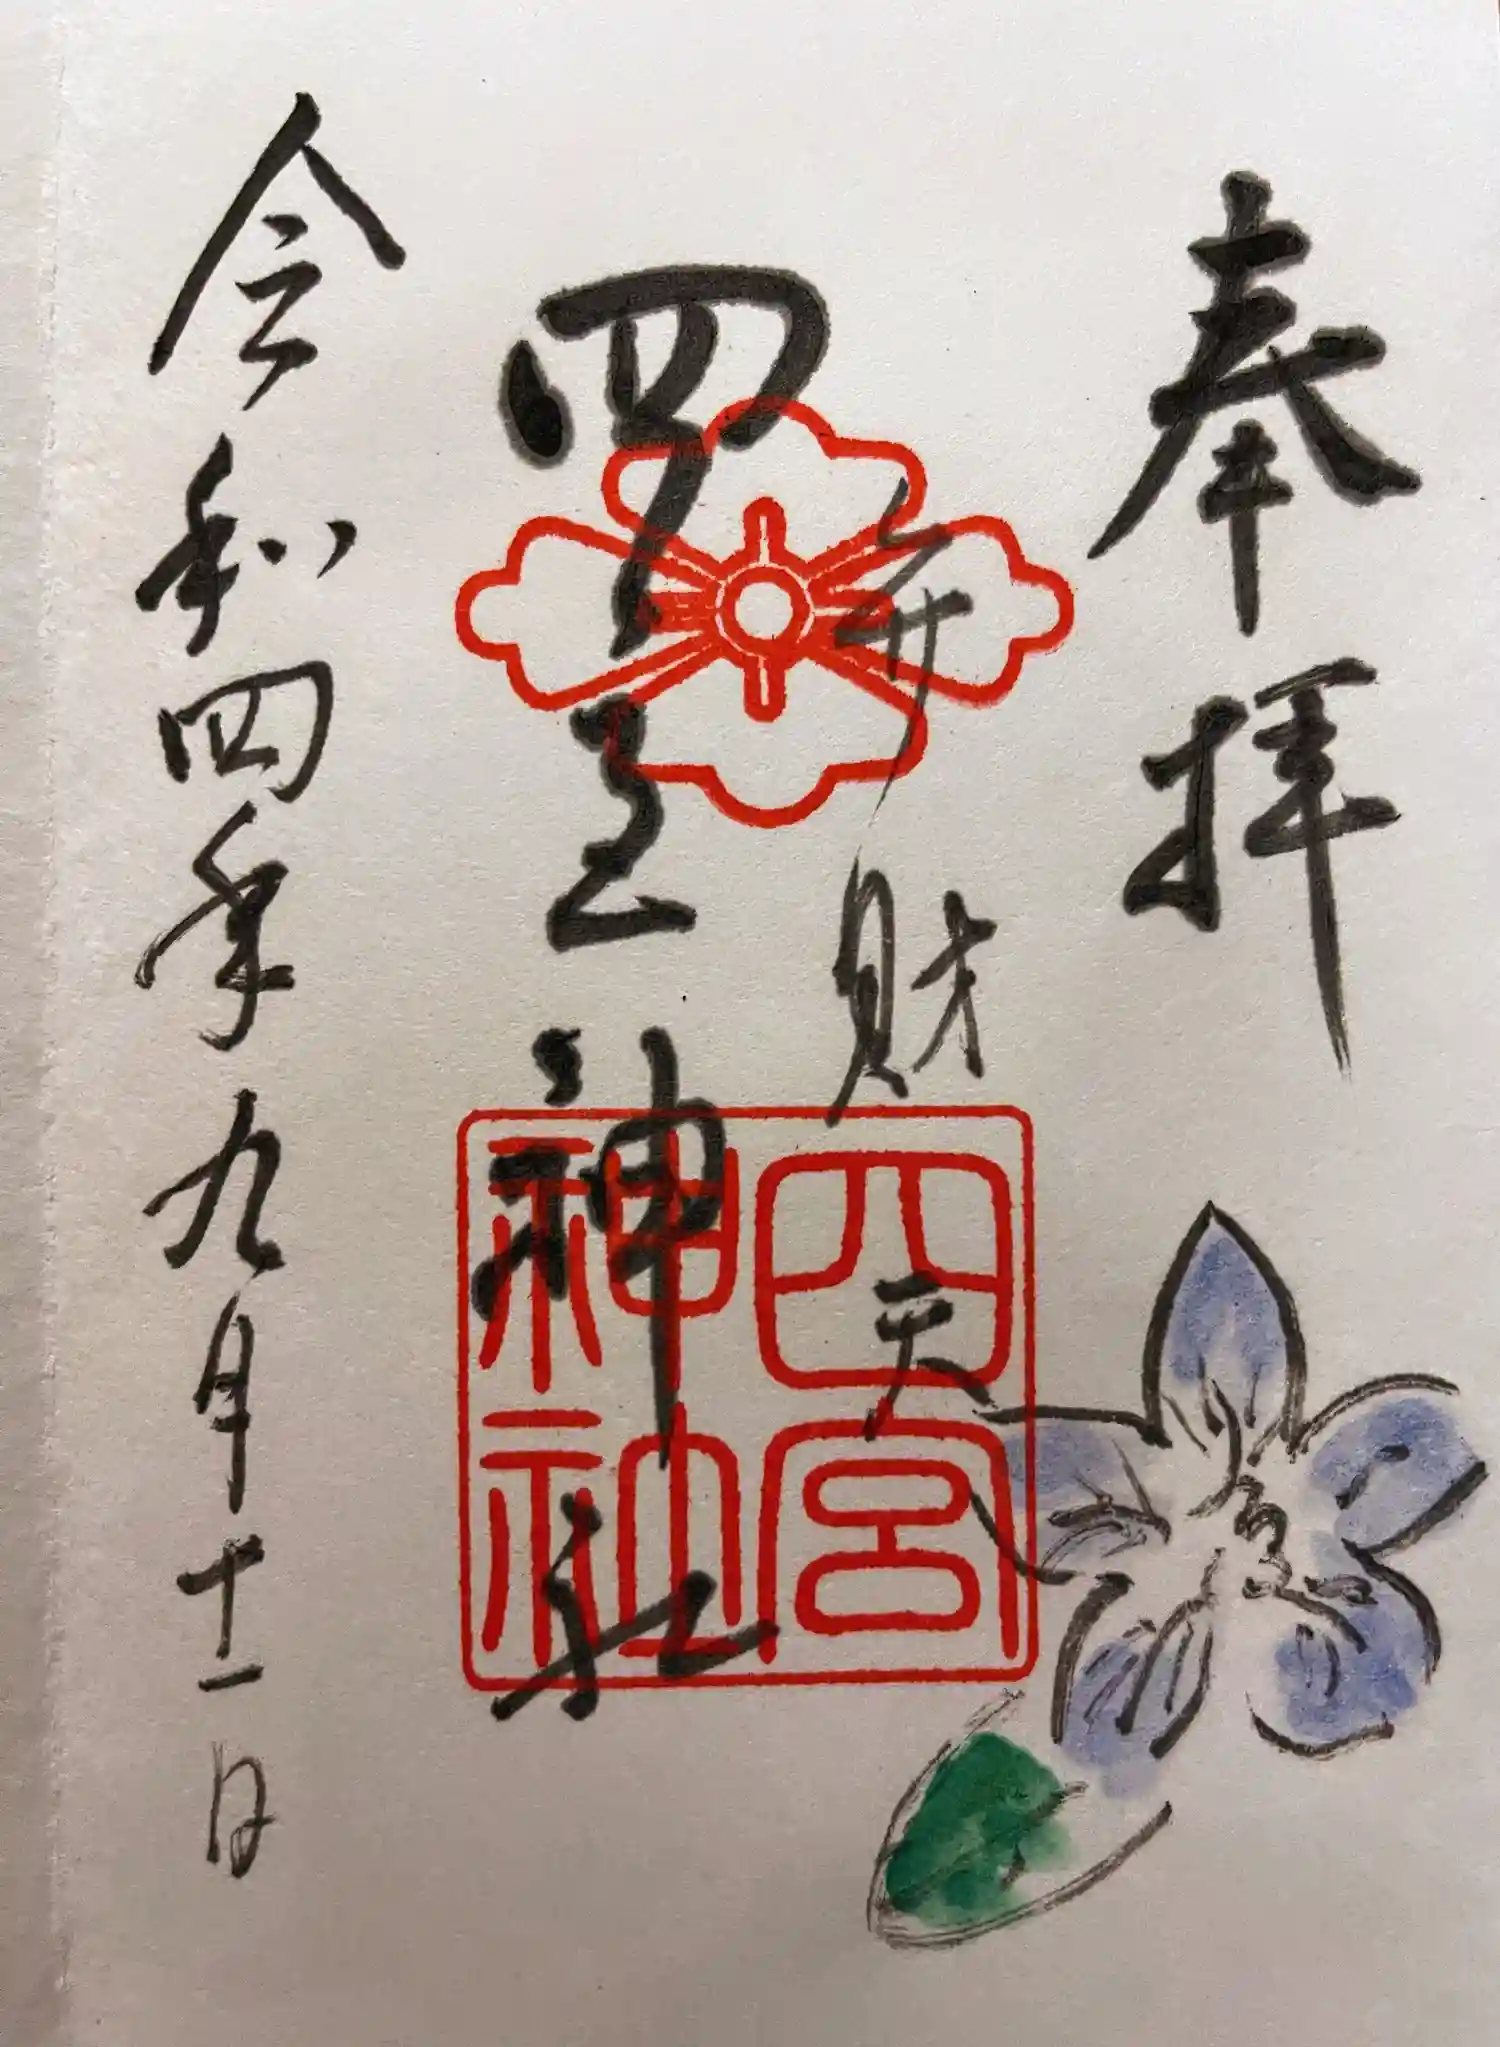 奉拝
弁財天
四宮神社
四宮神社
令和四年九月十一日